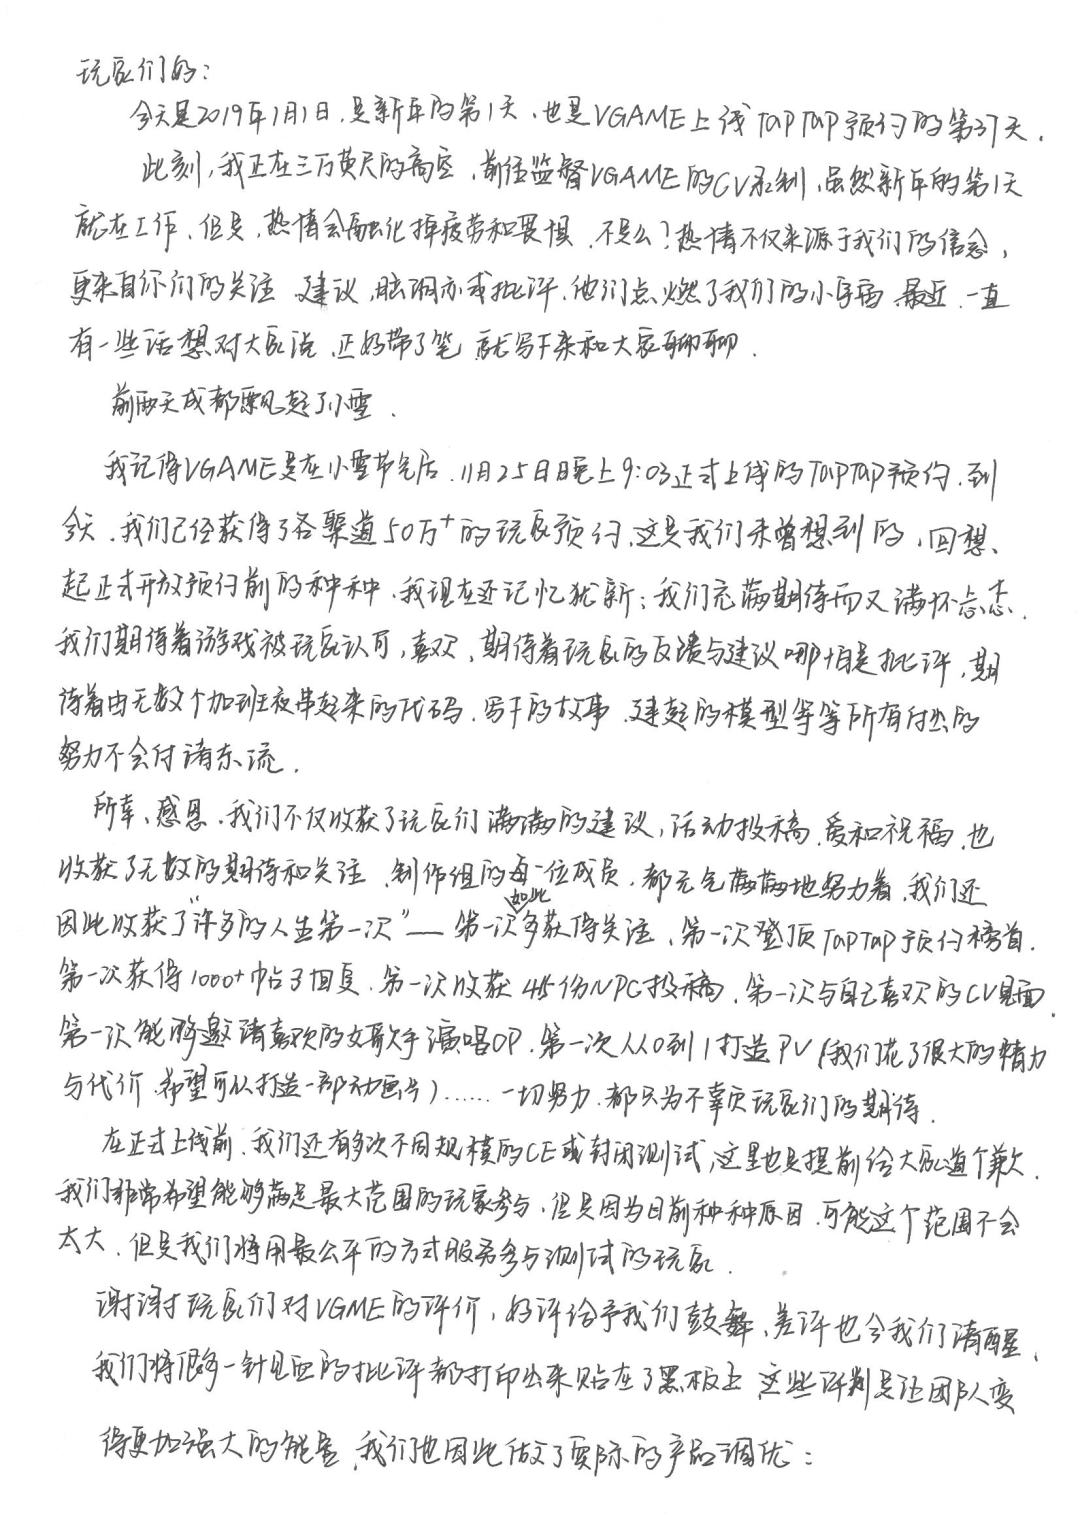 玩家们好：
今天是2019年1月1日，是新年的第1天，也是VGAME上线TapTap预约的第37天，
此刻，我正在三万英尺的高空，前往监督VGAME的CV录制，虽然新年的第1天
就在工作，但是，热情会融化掉疲劳和畏惧，不是么？热情不仅来源于我们的信念，
更来自你们的关注、建议，脑洞亦或批评，他们点燃了我们的小宇宙，最近，一直
有一些话想对大家说，正好带了笔，就写下来和大家聊聊．
前两天成都飘起了小雪．
我记得VGAME是在小雪节气后，11月25日晚上9:03正式上线的TapTap预约，到
今天，我们已经获得了各渠道50万+的玩家预约，这是我们未曾想到的，回想、
起正式开放预约前的种种，我现在还记忆犹新：我们充满期待而又满怀忐忑．
我们期待着游戏被玩家认可，喜欢，期待着玩家的反馈与建议哪怕是批评，期
待着由无数个加班夜串起来的代码，写下的故事，建起的模型等等所有付出的
努力不会付诸东流．
所幸、感恩，我们不仅收获了玩家们满满的建议，活动投稿，爱和祝福，也
收获了无数的期待和关注，制作组的每一位成员，都元气满满地努力着，我们还
因此收获了“许多的人生第一次”——第一次如此多获得关注，第一次登顶TapTap预约榜首．
第一次获得1000+帖子回复，第一次收获45份NPC投稿，第一次与自己喜欢的CV见面，
第一次能够邀请喜欢的女歌手演唱OP，第一次从0到1打造PV（我们花了很大的精力
与代价，希望可以打造一部动画片）……一切努力，都只为不辜负玩家们的期待．
在正式上线前，我们还有多次不同规模的CE或封闭测试，这里也是提前给大家道个歉．
我们非常希望能够满足最大范围的玩家参与，但是因为目前种种原因，可能这个范围不会
太大，但是我们将用最公平的方式服务参与测试的玩家．
谢谢玩家们对VGME的评价，好评给予我们鼓舞、差评也令我们清醒，
我们将很多一针见血的批评都打印出来贴在了黑板上，这些评判是让团队变
得更加强大的能量，我们也因此做了实际的产品调优：